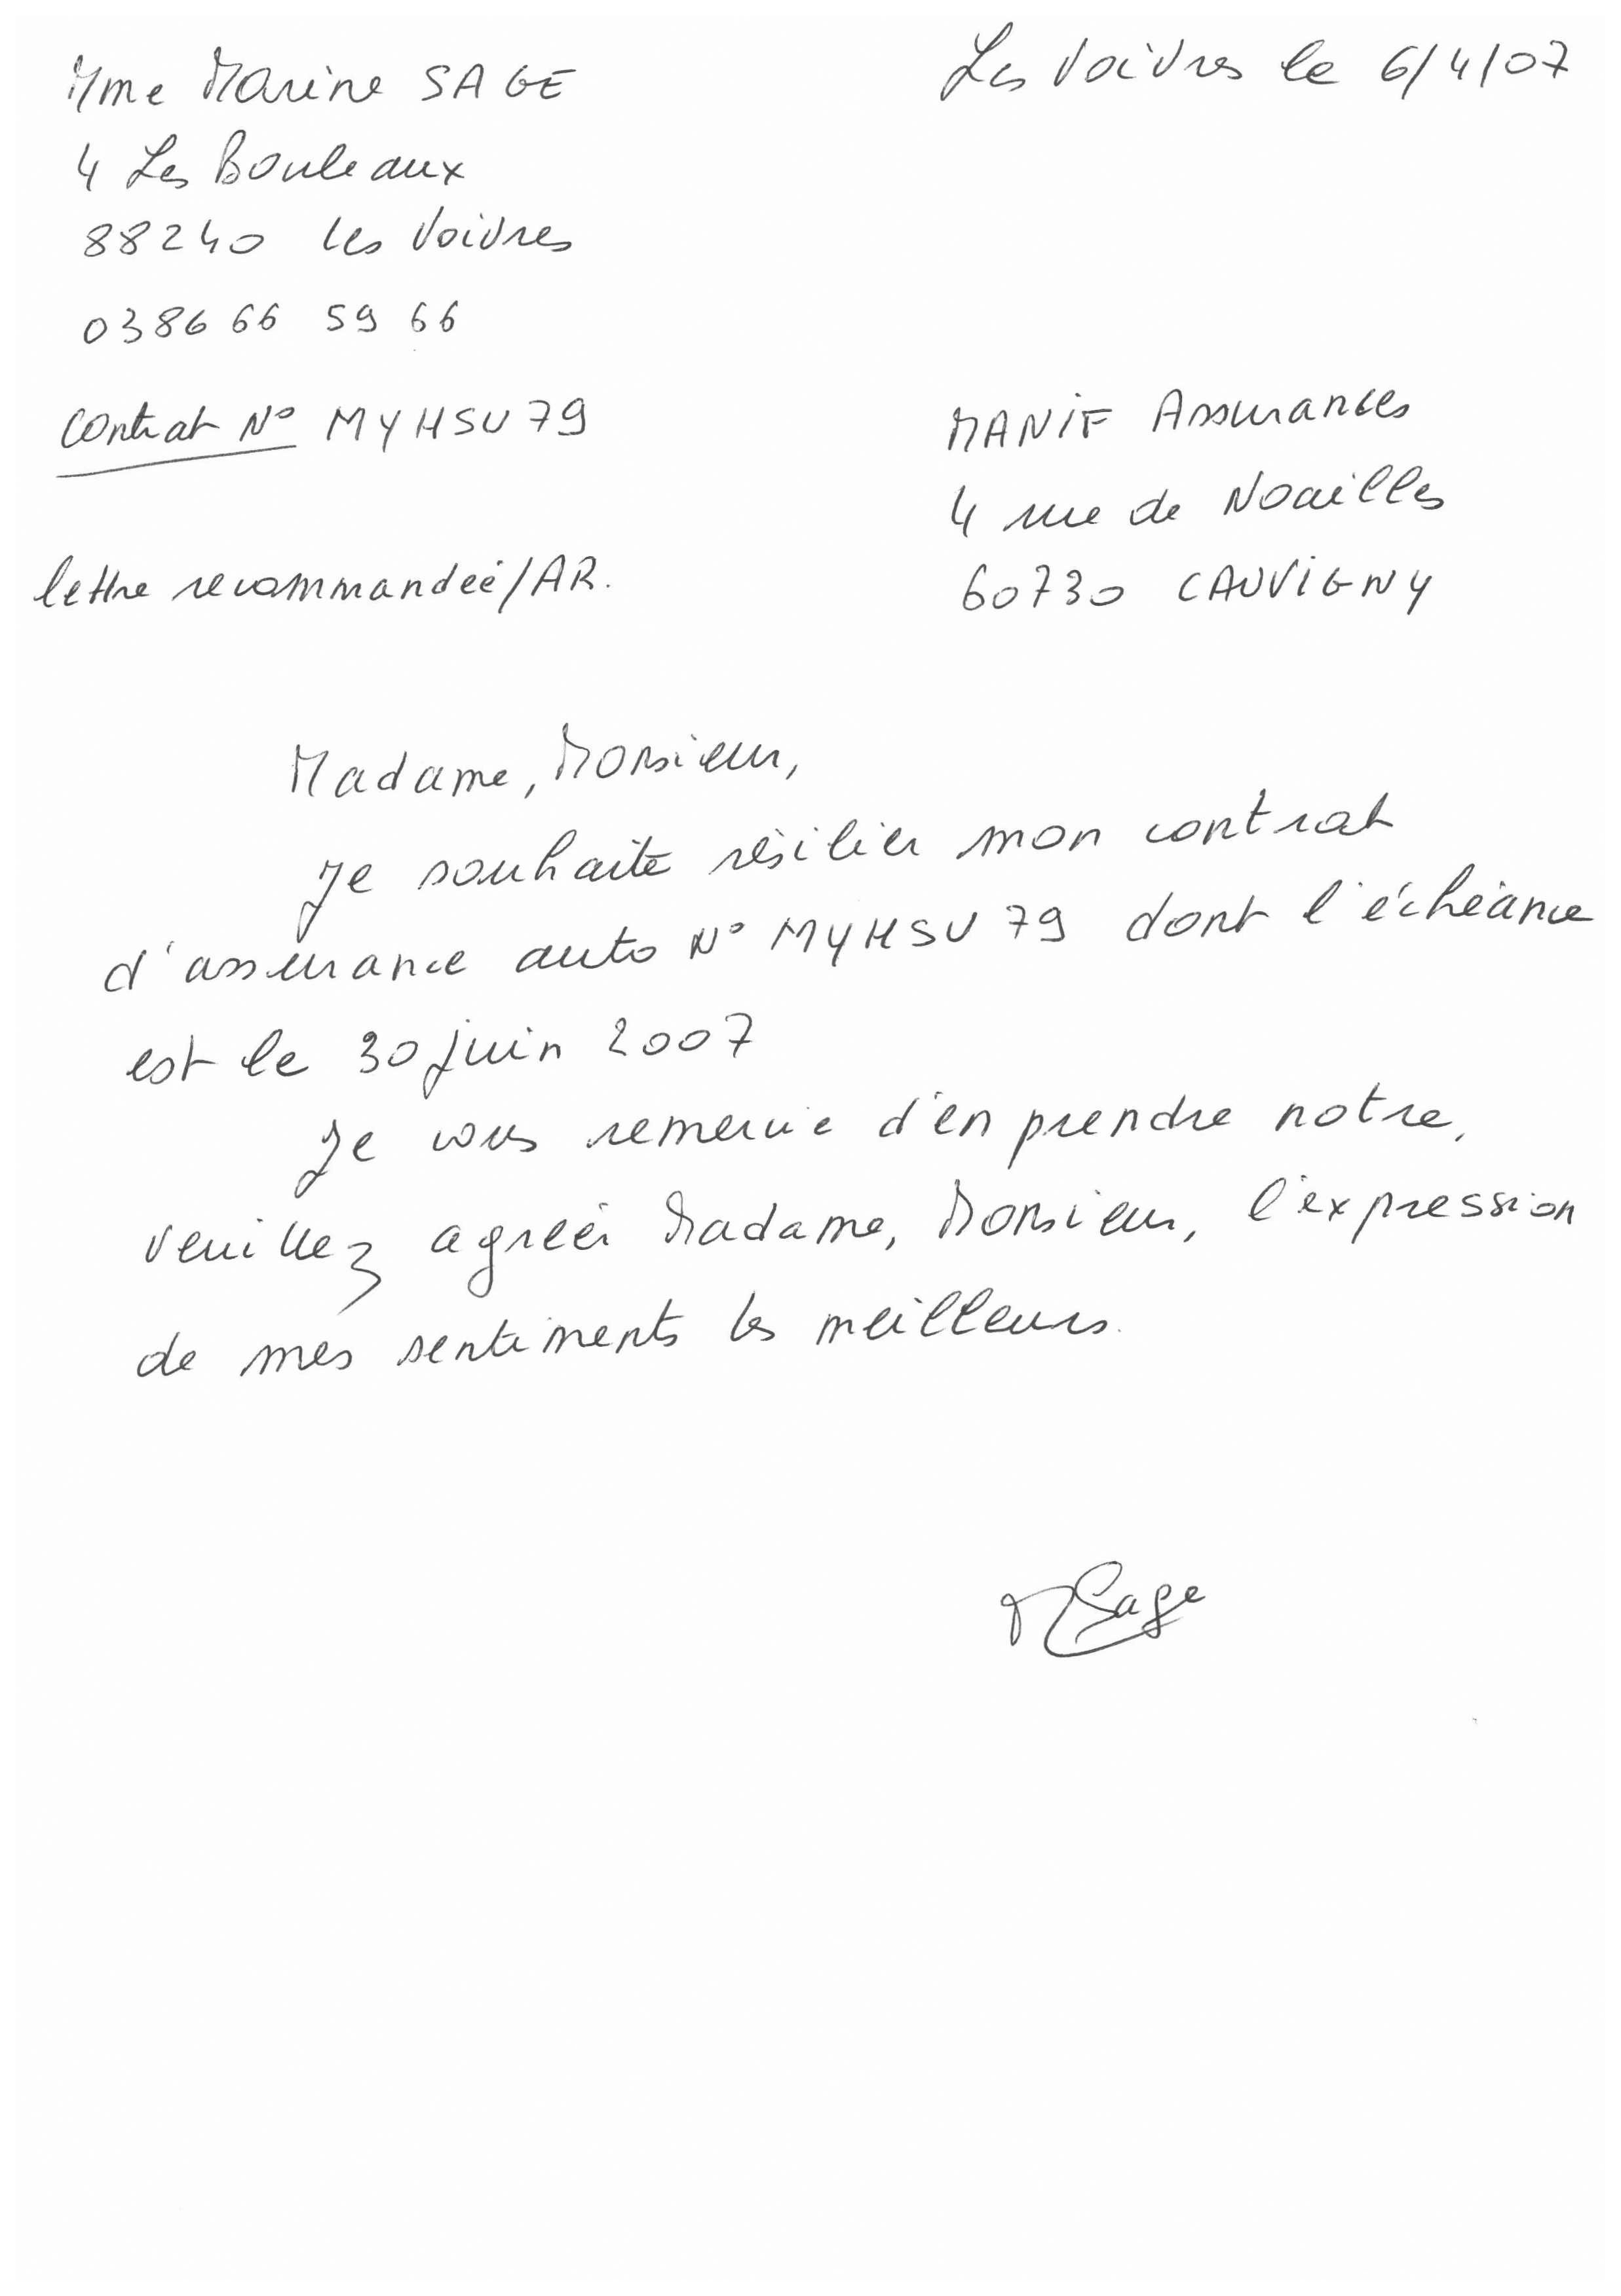 Mme Marine SAGE
4 Les Bouleaux
88240 les Voivres
0386 66 59 66
Contrat N° MYHSU79
lettre recommandée/AR.
Les Voivres le 6/4/07
MANIF Assurances
4 rue de Noailles
60730 CAUVIGNY
Madame, Monsieur,
Je souhaite résilier mon contrat
d'assurance auto N° MYHSU79 dont l'échéance
est le 30 juin 2007
Je vous remercie d'en prendre notre,
veuillez agréér Madame, Monsieur, l'expression
de mes sentiments les meilleurs.
MSage